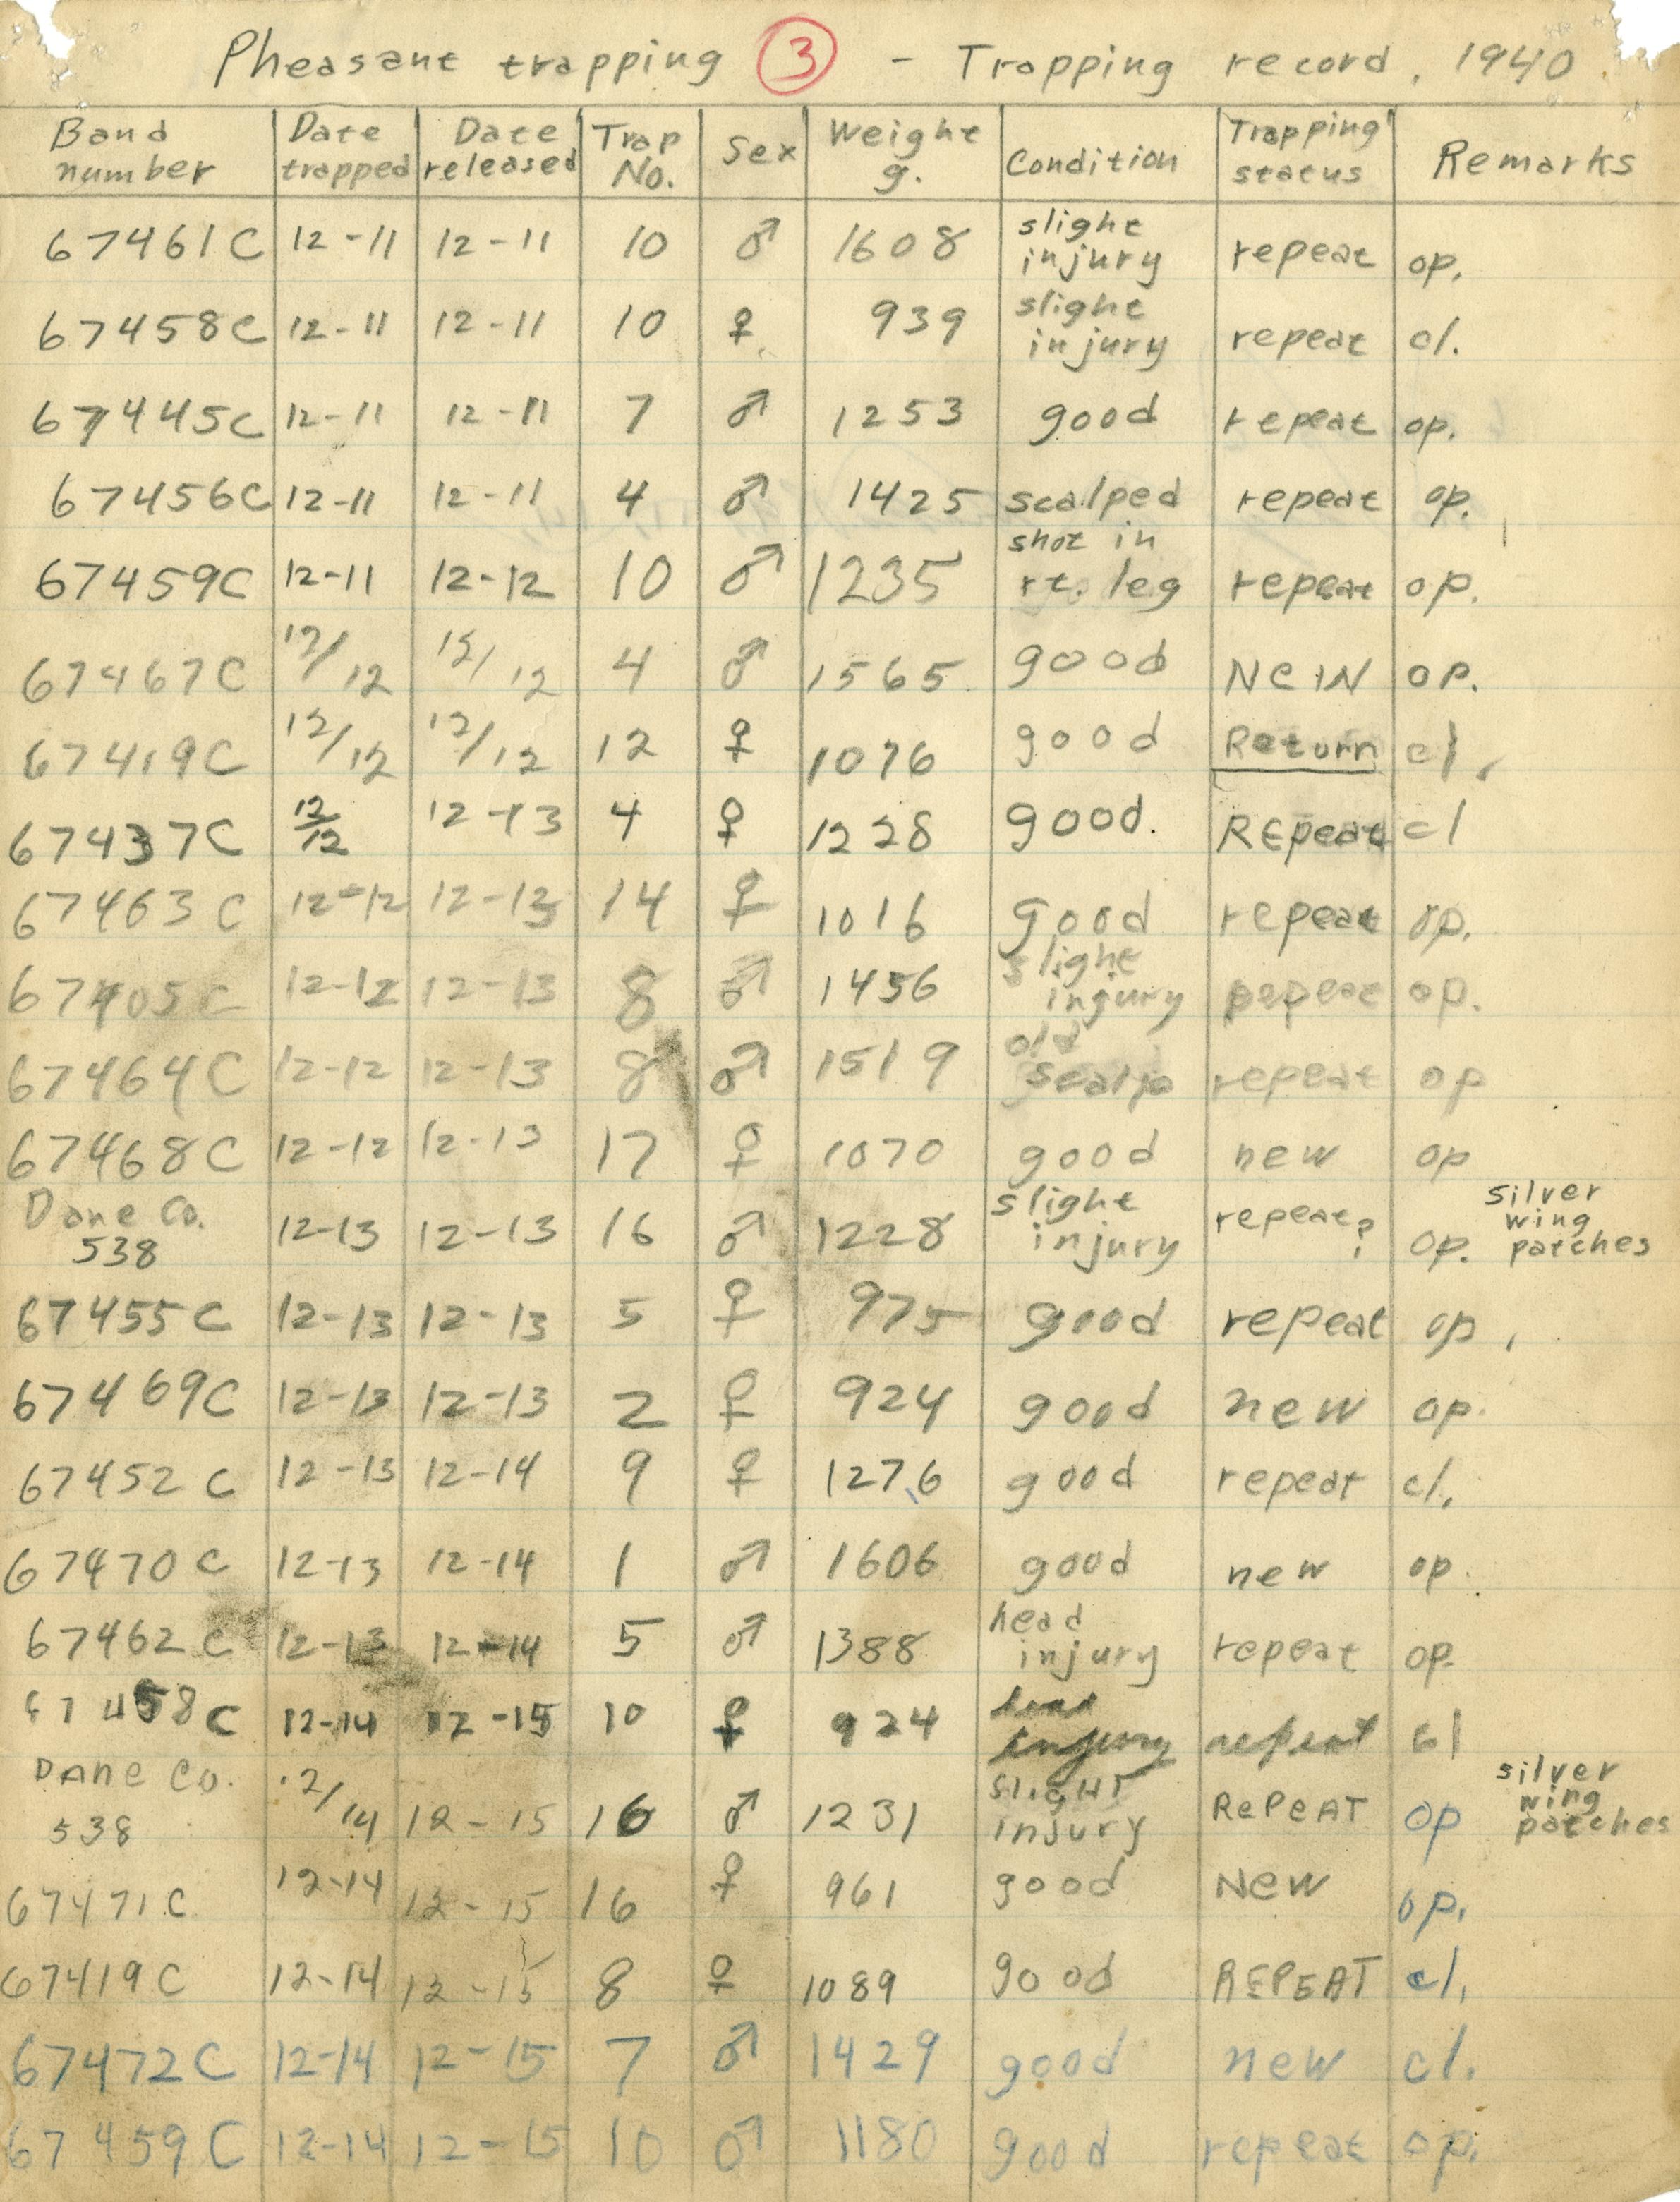 Pheasant trapping ③ - Trapping record. 1940
Band number | Date trapped | Date released | Trap No. | Sex | Weight g. | Condition | Trapping status | Remarks
67461C 12-11 12-11 10 ♂ 1608 slight injury repeat op.
67458C 12-11 12-11 10 ♀ 939 slight injury repeat cl.
67445C 12-11 12-11 7 ♂ 1253 good repeat op.
67456C 12-11 12-11 4 ♂ 1425 scalped repeat op.
67459C 12-11 12-12 10 ♂ 1235 shot in rt. leg repeat op.
67467C 12/12 12/12 4 ♂ 1565 good New op.
67419C 12/12 12/12 12 ♀ 1076 good Return cl.
67437C 12/12 12-13 4 ♀ 1228 good. Repeat cl
67463C 12-12 12-13 14 ♀ 1016 good repeat op.
67405C 12-12 12-13 8 ♂ 1456 slight injury repeat op.
67464C 12-12 12-13 8 ♂ 1519 old scalp repeat op
67468C 12-12 12-13 17 ♀ 1070 good new op
Dane Co. 538 12-13 12-13 16 ♂ 1228 slight injury repeat? op. silver wing patches
67455C 12-13 12-13 5 ♀ 975 good repeat op.
67469C 12-13 12-13 2 ♀ 924 good new op.
67452C 12-13 12-14 9 ♀ 1276 good repeat cl.
67470C 12-13 12-14 1 ♂ 1606 good new op.
67462C 12-13 12-14 5 ♂ 1388 head injury repeat op.
67458C 12-14 12-15 10 ♀ 924 head injury repeat cl
Dane Co. 538 12/14 12-15 16 ♂ 1231 slight injury RePEAT op silver wing patches
67471C 12-14 12-15 16 ♀ 961 good New op.
67419C 12-14 12-15 8 ♀ 1089 good REPEAT cl.
67472C 12-14 12-15 7 ♂ 1429 good new cl.
67459C 12-14 12-15 10 ♂ 1180 good repeat op.